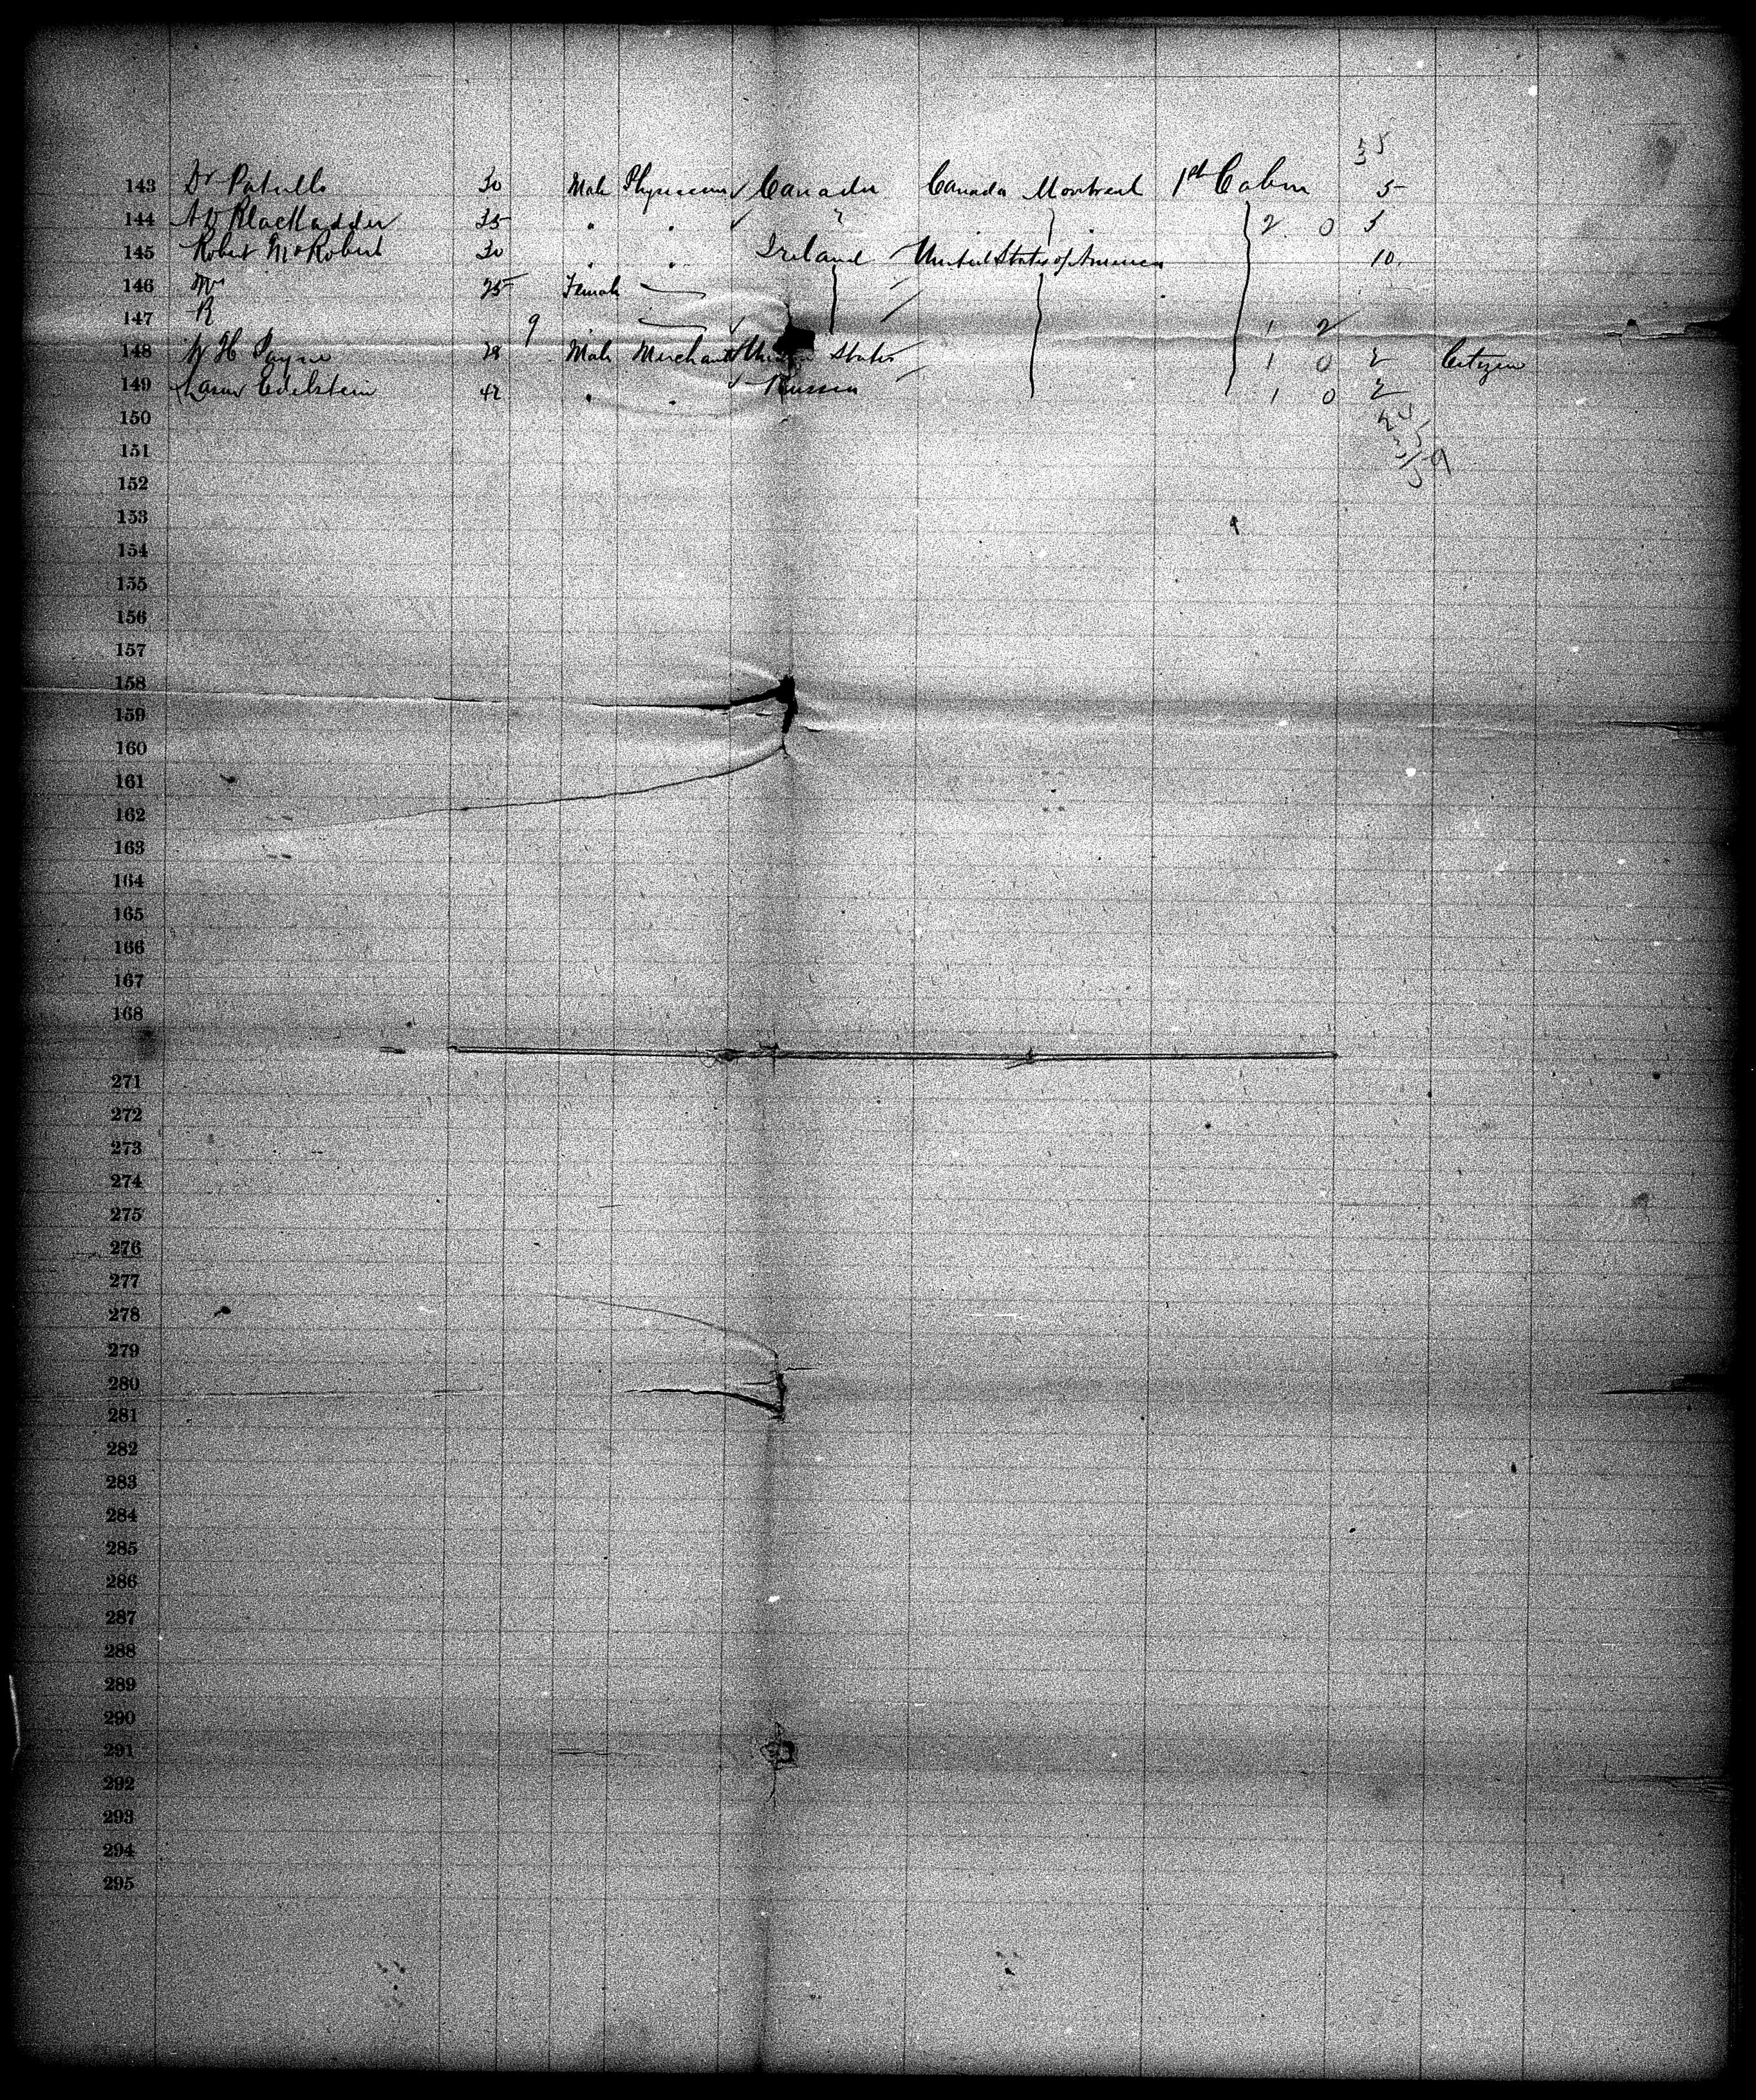 35
143 Dr Patullo 30 Male Physician ✓ Canada Canada Montreal 1st Cabin 5
144 A D Blackadder 35 " " ✓ " 2 0 5
145 Robert McRobert 30 " " Ireland United States of America 10
146 Mrs 25 Female
147 R 9 " ✓ 1 2
148 W H Payne 28 Male Merchant ✓ United States 1 0 2 Citizen
149 Edelstein 42 " " ✓ Russia 1 0 2
150
151
152
153
154
155
156
157
158
159
160
161
162
163
164
165
166
167
168
271
272
273
274
275
276
277
278
279
280
281
282
283
284
285
286
287
288
289
290
291
292
293
294
295